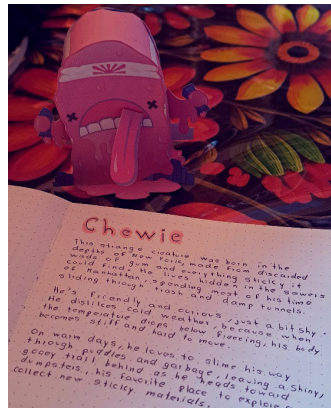 Chewie
This strange creature was born in the
depths of New York, made from discarded
wads of gum and everything sticky it
could find. He lives hidden in the sewers
of Manhattan, spending most of his time
sliding through trash and damp tunnels.
He's friendly and curious, just a bit shy.
He dislikes cold weather, because when
the temperature drops below fiercing, his body
becomes stiff and hard to move.
On warm days, he loves to slime his way
through puddles and garbage, leaving a shiny,
gooey trail behind as he heads toward
dumpsters, his favorite place to explore
collect new sticky materials.